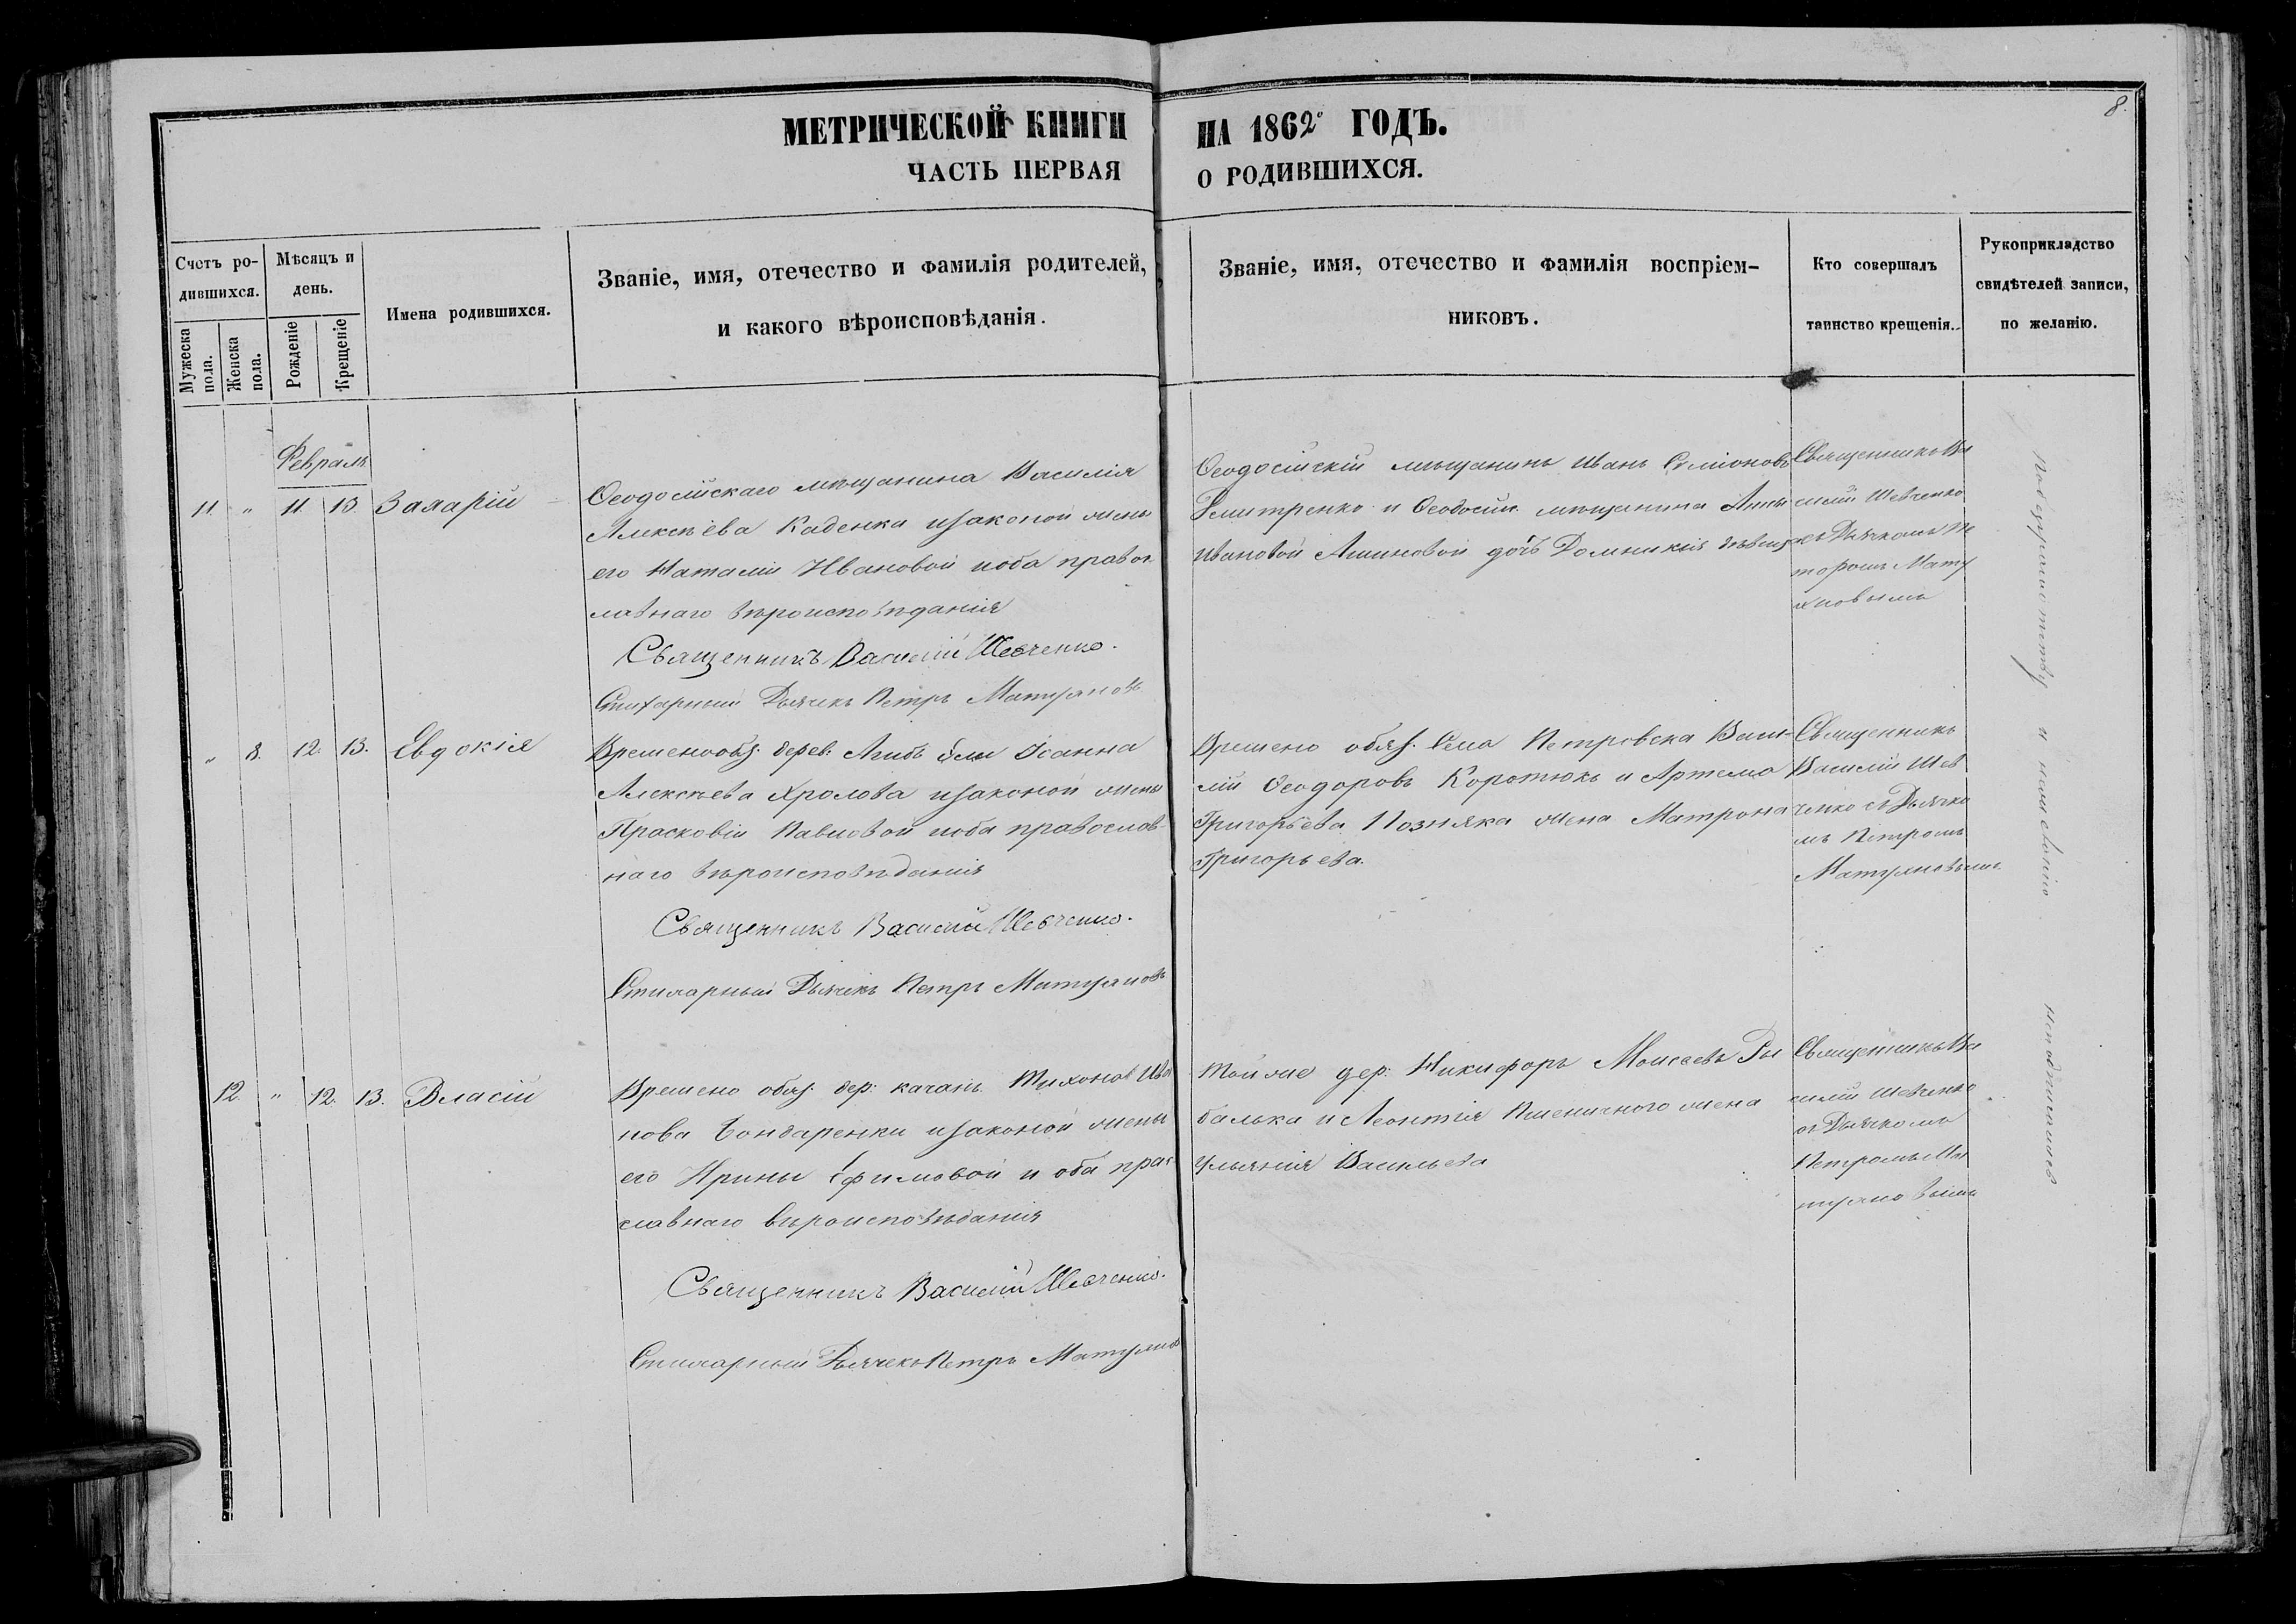 8.
МЕТРИЧЕСКОЙ КНИГИ НА 1862º ГОДЪ.
ЧАСТЬ ПЕРВАЯ О РОДИВШИХСЯ.
Счетъ ро-
дившихся.
Мужеска
пола.
Женска
пола.
Мѣсяцъ и
день.
Рожденіе
Крещеніе
Имена родившихся.
Званіе, имя, отечество и фамилія родителей,
и какого вѣроисповѣданія.
Званіе, имя, отечество и фамилія воспріем-
никовъ.
Кто совершалъ
таинство крещенія.
Рукоприкладство
свидѣтелей записи,
по желанію.
Февраль
11. " 11 13
Ѳеодосійскаго мѣщанина Василія
Алексѣева Каденка изаконой жены
его Наталіи Ивановой иоба правос
лавнаго вѣроисповѣданія
Священникъ Василій Шевченко.
Стихарный Дьячекъ Петръ
Ѳеодосійскій мѣщанинъ Иванъ Симіоновъ
Демитренко и Ѳеодосій. мѣщанина
Ивановой дочь Домникія
Священникъ Ва
силій Шевченко
съ Дьячкомъ Пе
тромъ
" 8. 12. 13. Евдокія
Временнообяз. дерев. Іоанна
Алексѣева Хролова изаконой жены
Прасковіи Павловой иоба православ-
наго вѣроисповѣданія
Священникъ Василій Шевченко.
Стихарный Дьячекъ Петръ
Времено обяз. Села Петровска Васи-
лій Ѳеодоровъ Коротюкъ и Артема
Григорьева Позняка жена Матрона
Григорьева.
Священникъ
Василій Шев
ченко съ Дьячко
мъ Петромъ
12. " 12. 13. Власій
Времено обяз. дер. качанъ. Тихонов Ива
нова Бондаренки изаконой жены
его Ирины Ефимовой и оба прав
славнаго вѣроисповѣданія
Священникъ Василій Шевченко.
Стихарный Дьячекъ Петръ
Той же дер. Никифоръ Моисеевъ Ры
балька и Леонтія Пшеничного жена
Ульянія Васильева
Священникъ Ва
силій Шевченко
съ Дьячкомъ
Петромъ